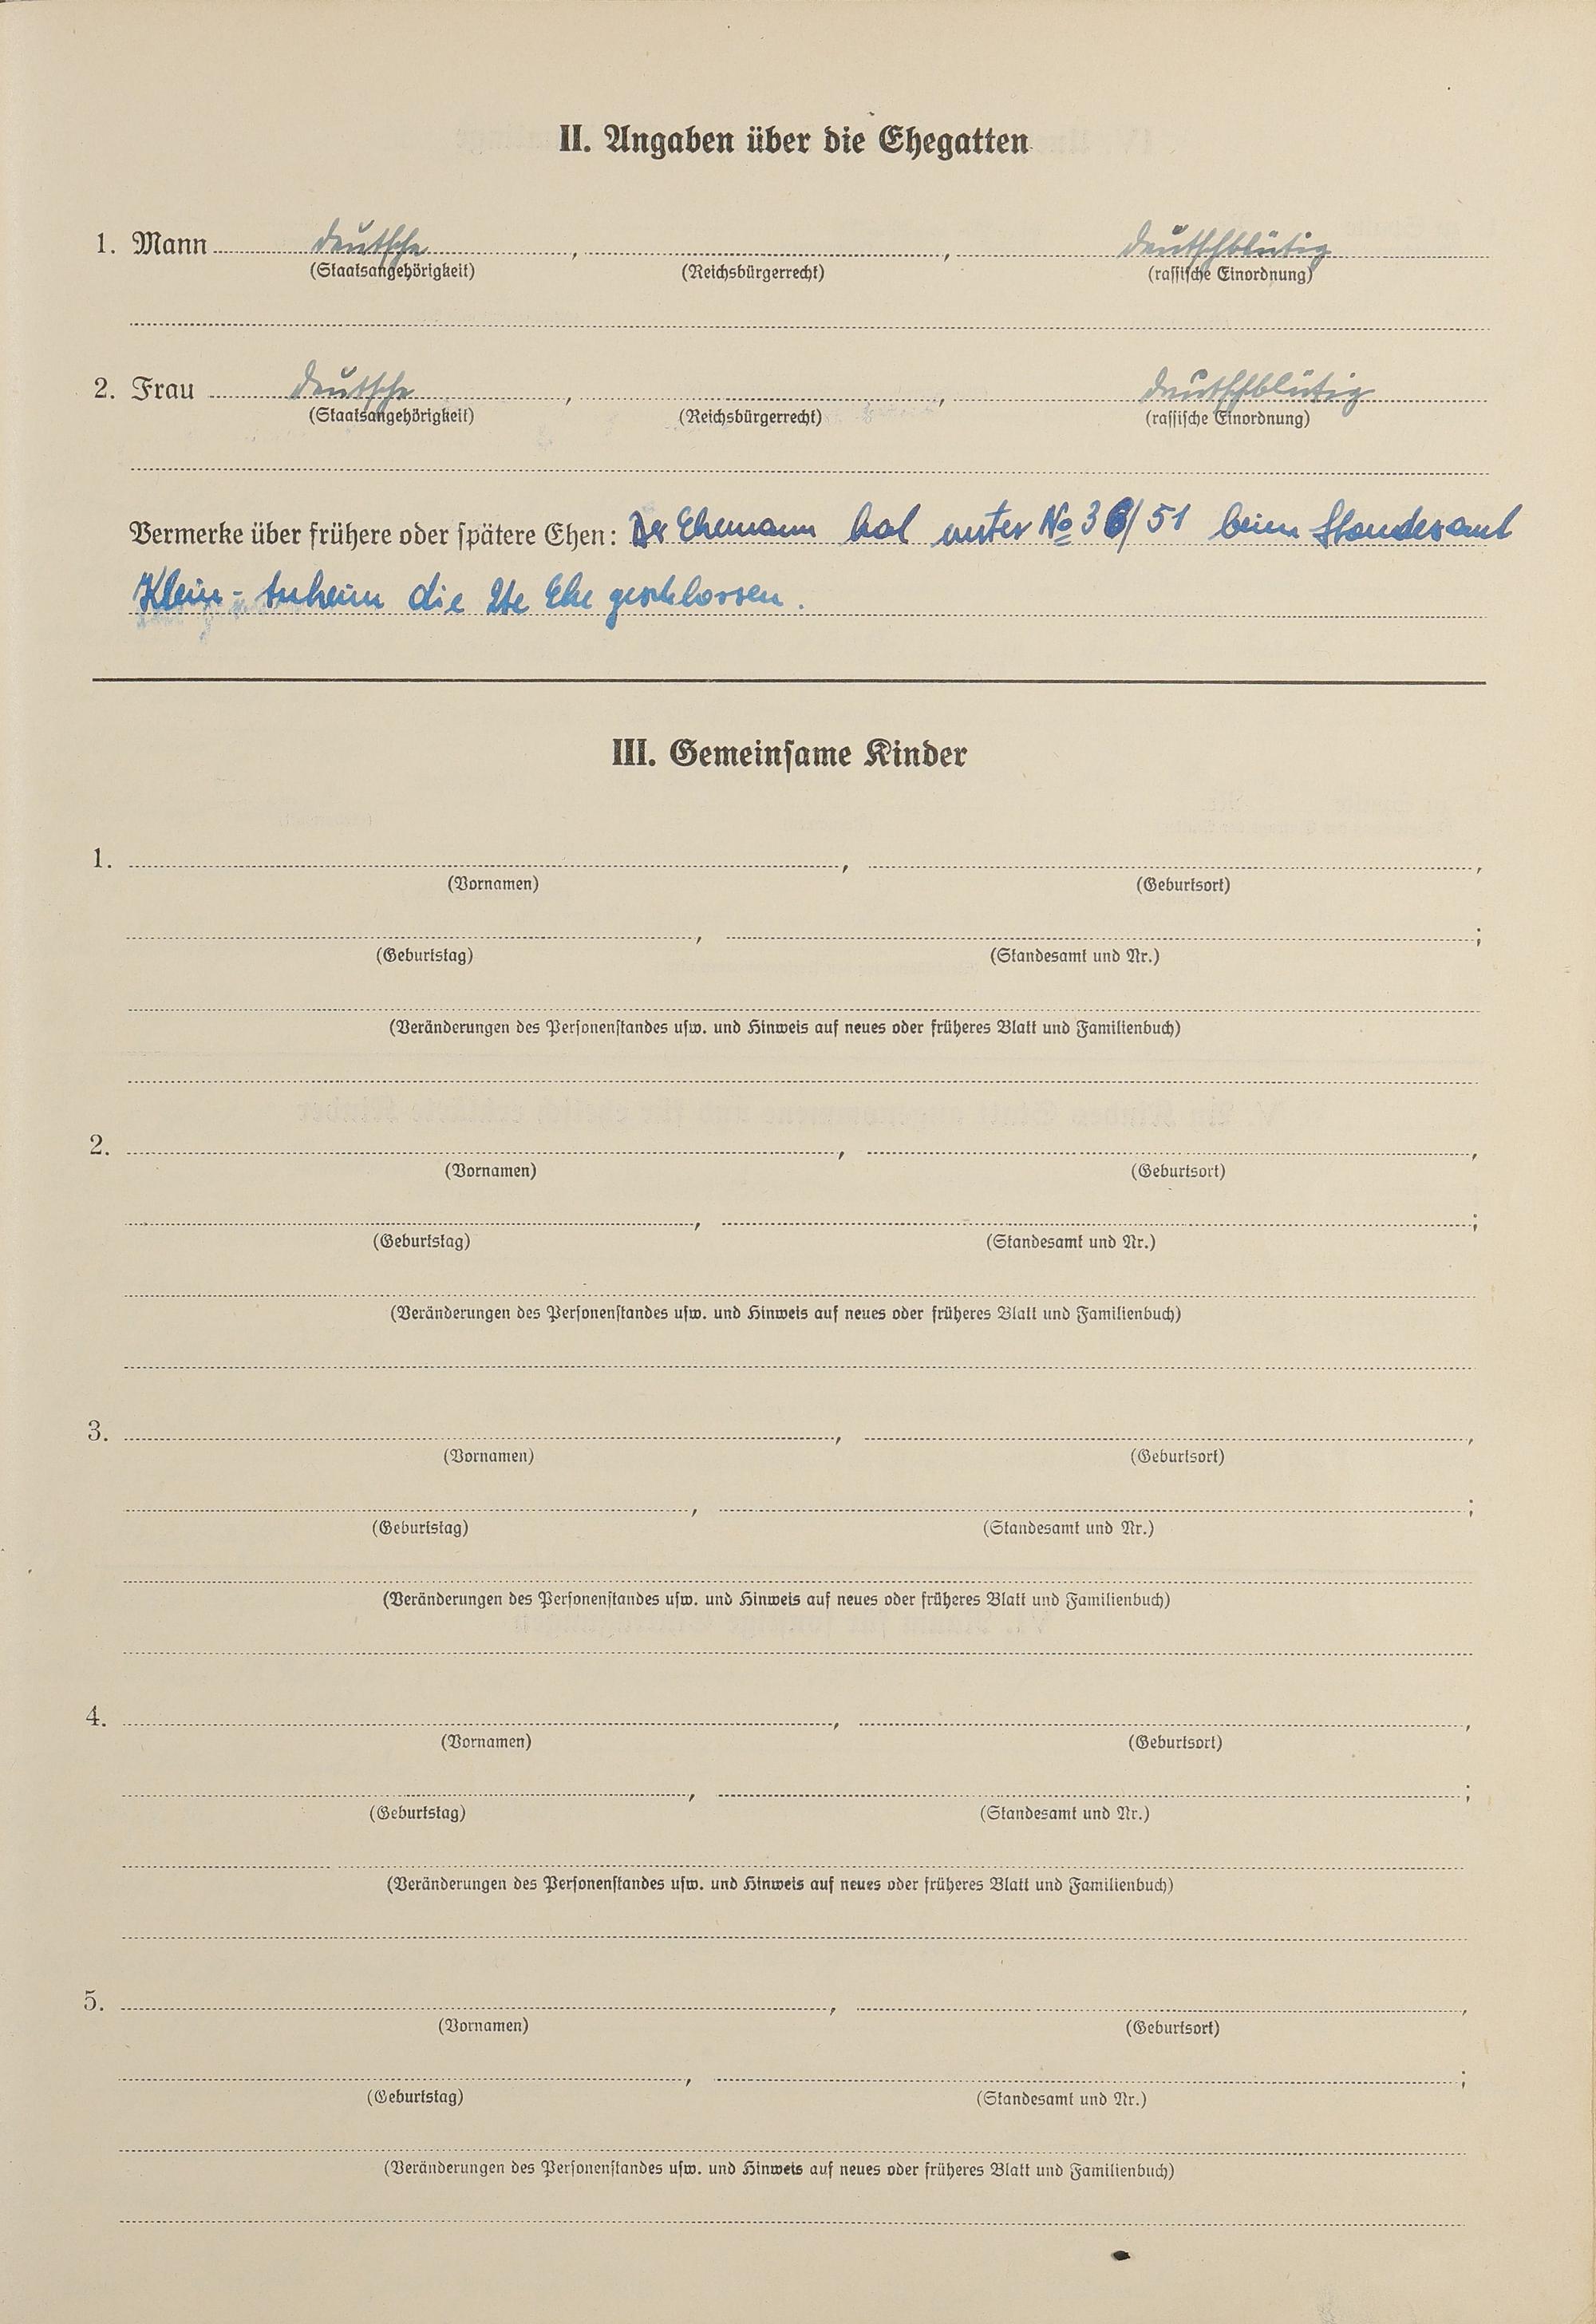 II. Angaben über die Ehegatten
1. Mann deutsche , , deutschblütig
(Staatsangehörigkeit) (Reichsbürgerrecht) (rassische Einordnung)
2. Frau deutsche , , deutschblütig
(Staatsangehörigkeit) (Reichsbürgerrecht) (rassische Einordnung)
Vermerke über frühere oder spätere Ehen: Der Ehemann hat unter No 36/51 beim Standesamt
Klein- die 2te Ehe geschlossen.
III. Gemeinsame Kinder
1. , ,
(Vornamen) (Geburtsort)
, ;
(Geburtstag) (Standesamt und Nr.)
(Veränderungen des Personenstandes usw. und Hinweis auf neues oder früheres Blatt und Familienbuch)
2. , ,
(Vornamen) (Geburtsort)
, ;
(Geburtstag) (Standesamt und Nr.)
(Veränderungen des Personenstandes usw. und Hinweis auf neues oder früheres Blatt und Familienbuch)
3. , ,
(Vornamen) (Geburtsort)
, ;
(Geburtstag) (Standesamt und Nr.)
(Veränderungen des Personenstandes usw. und Hinweis auf neues oder früheres Blatt und Familienbuch)
4. , ,
(Vornamen) (Geburtsort)
, ;
(Geburtstag) (Standesamt und Nr.)
(Veränderungen des Personenstandes usw. und Hinweis auf neues oder früheres Blatt und Familienbuch)
5. , ,
(Vornamen) (Geburtsort)
, ;
(Geburtstag) (Standesamt und Nr.)
(Veränderungen des Personenstandes usw. und Hinweis auf neues oder früheres Blatt und Familienbuch)